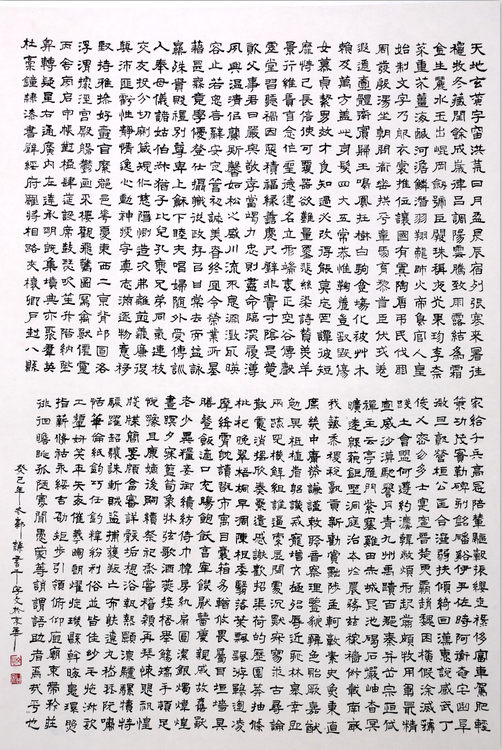 天地玄黃宇宙洪荒日月盈昃辰宿列張寒來暑往
秋收冬藏閏餘成歲律呂調陽雲騰致雨露結為霜
金生麗水玉出崐岡劍號巨闕珠稱夜光果珍李柰
菜重芥薑海鹹河淡鱗潛羽翔龍師火帝鳥官人皇
始制文字乃服衣裳推位讓國有虞陶唐弔民伐罪
周發殷湯坐朝問道垂拱平章愛育黎首臣伏戎羌
遐邇壹體率賓歸王鳴鳳在樹白駒食場化被草木
賴及萬方蓋此身髮四大五常恭惟鞠養豈敢毀傷
女慕貞絜男效才良知過必改得能莫忘罔談彼短
靡恃己長信使可覆器欲難量墨悲絲染詩讚羔羊
景行維賢克念作聖德建名立形端表正空谷傳聲
虛堂習聽禍因惡積福緣善慶尺璧非寶寸陰是競
資父事君曰嚴與敬孝當竭力忠則盡命臨深履薄
夙興溫凊似蘭斯馨如松之盛川流不息淵澄取映
容止若思言辭安定篤初誠美慎終宜令榮業所基
藉甚無竟學優登仕攝職從政存以甘棠去而益詠
樂殊貴賤禮別尊卑上和下睦夫唱婦隨外受傅訓
入奉母儀諸姑伯叔猶子比兒孔懷兄弟同氣連枝
交友投分切磨箴規仁慈隱惻造次弗離節義廉退
顛沛匪虧性靜情逸心動神疲守真志滿逐物意移
堅持雅操好爵自縻都邑華夏東西二京背邙面洛
浮渭據涇宮殿盤鬱樓觀飛驚圖寫禽獸畫彩仙靈
丙舍傍啟甲帳對楹肆筵設席鼓瑟吹笙升階納陛
弁轉疑星右通廣內左達承明既集墳典亦聚羣英
杜稾鍾隸漆書壁經府羅將相路俠槐卿戶封八縣
家給千兵高冠陪輦驅轂振纓世祿侈富車駕肥輕
策功茂實勒碑刻銘磻溪伊尹佐時阿衡奄宅曲阜
微旦孰營桓公匡合濟弱扶傾綺回漢惠說感武丁
俊乂密勿多士寔寧晉楚更霸趙魏困橫假途滅虢
踐土會盟何遵約法韓弊煩刑起翦頗牧用軍最精
宣威沙漠馳譽丹青九州禹跡百郡秦并嶽宗恆岱
禪主云亭雁門紫塞雞田赤城昆池碣石鉅野洞庭
曠遠緜邈巖岫杳冥治本於農務茲稼穡俶載南畝
我藝黍稷稅熟貢新勸賞黜陟孟軻敦素史魚秉直
庶幾中庸勞謙謹敕聆音察理鑒貌辨色貽厥嘉猷
勉其祗植省躬譏誡寵增抗極殆辱近恥林皋幸即
兩疏見機解組誰逼索居閒處沉默寂寥求古尋論
散慮逍遙欣奏累遣慼謝歡招渠荷的歷園莽抽條
枇杷晚翠梧桐早凋陳根委翳落葉飄颻游鵾獨運
凌摩絳霄耽讀翫市寓目囊箱易輶攸畏屬耳垣牆
具膳飡飯適口充腸飽飫烹宰飢厭糟糠親戚故舊
老少異糧妾御績紡侍巾帷房紈扇圓潔銀燭煒煌
晝眠夕寐藍筍象牀弦歌酒讌接杯舉觴矯手頓足
悅豫且康嫡後嗣續祭祀烝嘗稽顙再拜悚懼恐惶
牋牒簡要顧答審詳骸垢想浴執熱願涼驢騾犢特
駭躍超驤誅斬賊盜捕獲叛亡布射遼丸嵇琴阮嘯
恬筆倫紙鈞巧任釣釋紛利俗並皆佳妙毛施淑姿
工顰妍笑年矢每催曦暉朗曜璇璣懸斡晦魄環照
指薪修祜永綏吉劭矩步引領俯仰廊廟束帶矜莊
徘徊瞻眺孤陋寡聞愚蒙等誚謂語助者焉哉乎也
癸巳年冬書千字文於京華